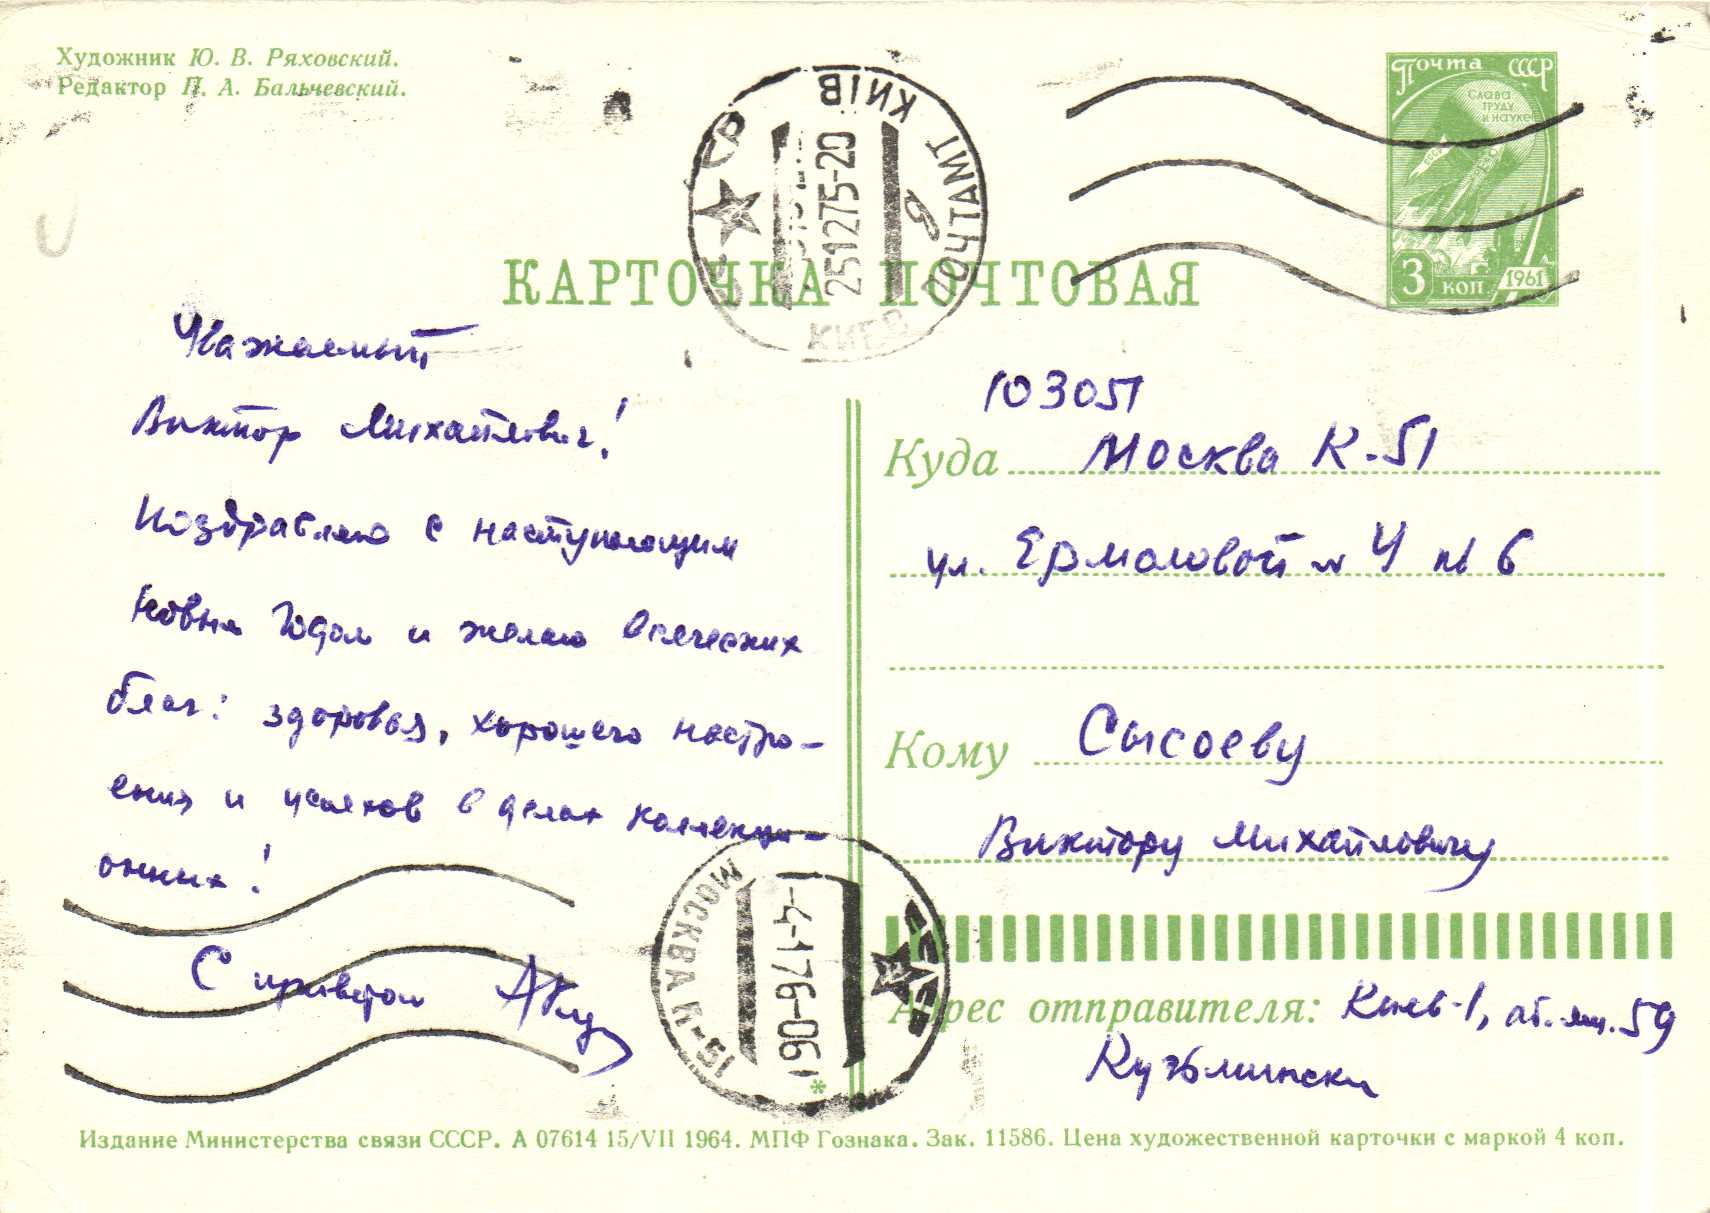 Художник Ю. В. Ряховский.
Редактор П. А. Бальчевский.
Почта СССР
СЛАВА
ТРУДУ
И НАУКЕ
3 КОП. 1961
КИЇВ
ПОЧТАМТ
251275-20
КИЕВ
КАРТОЧКА ПОЧТОВАЯ
Уважаемый
Виктор Михайлович!
Поздравляю с наступающим
Новым Годом и желаю всяческих
благ: здоровья, хорошего настро-
ения и успехов в делах коллекци-
онных!
С приветом
103051
Куда Москва К-51
ул. Ермоловой 4 6
Кому Сысоеву
Виктору Михайловичу
МОСКВА К-51
-4-176-06
СССР
Адрес отправителя: Киев-1, аб. ящ. 59
Кузьмински
Издание Министерства связи СССР. А 07614 15/VII 1964. МПФ Гознака. Зак. 11586. Цена художественной карточки с маркой 4 коп.